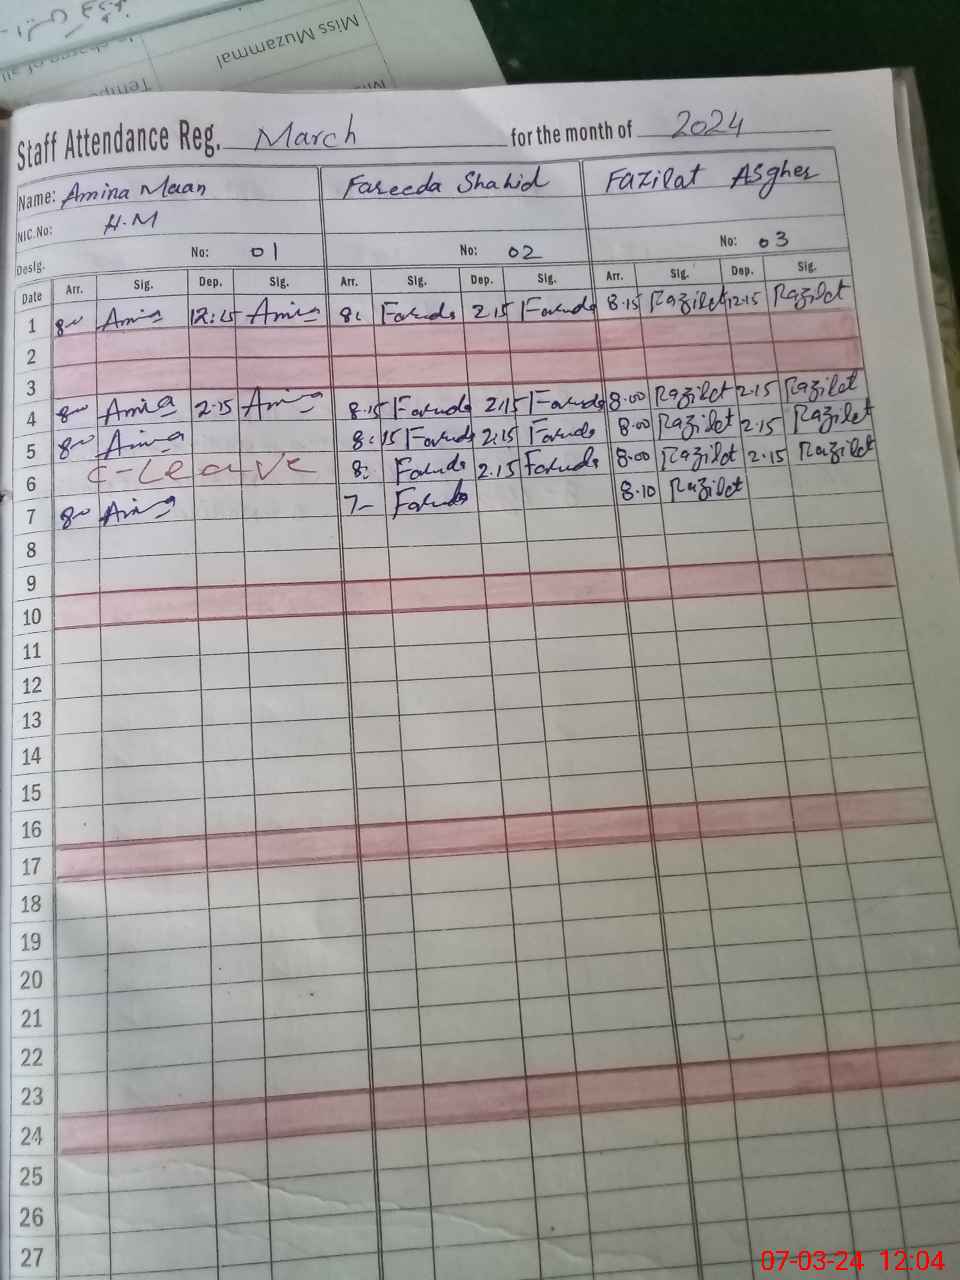 Miss Muzammal
Staff Attendance Reg. March for the month of 2024
Name: Amina Maan Fareeda Shahid Fazilat Asgher
NIC.No: H.M
Desig. No: 01 No: 02 No: 03
Date Arr. Sig. Dep. Sig. Arr. Sig. Dep. Sig. Arr. Sig. Dep. Sig.
1 8 00 Amina 12:15 Amina 8: Fareeda 2.15 Fareeda 8.15 Fazilat 12.15 Fazilat
2
3
4 8 00 Amina 2.15 Amina 8.15 Fareeda 2.15 Fareeda 8.00 Fazilat 2.15 Fazilat
5 8 00 Amina 8:15 Fareeda 2:15 Fareeda 8.00 Fazilat 2.15 Fazilat
6 C-Leave 8: Fareeda 2.15 Fareeda 8.00 Fazilat 2.15 Fazilat
7 8 00 Amina 7- Fareeda 8.10 Fazilat
8
9
10
11
12
13
14
15
16
17
18
19
20
21
22
23
24
25
26
27
07-03-24 12:04